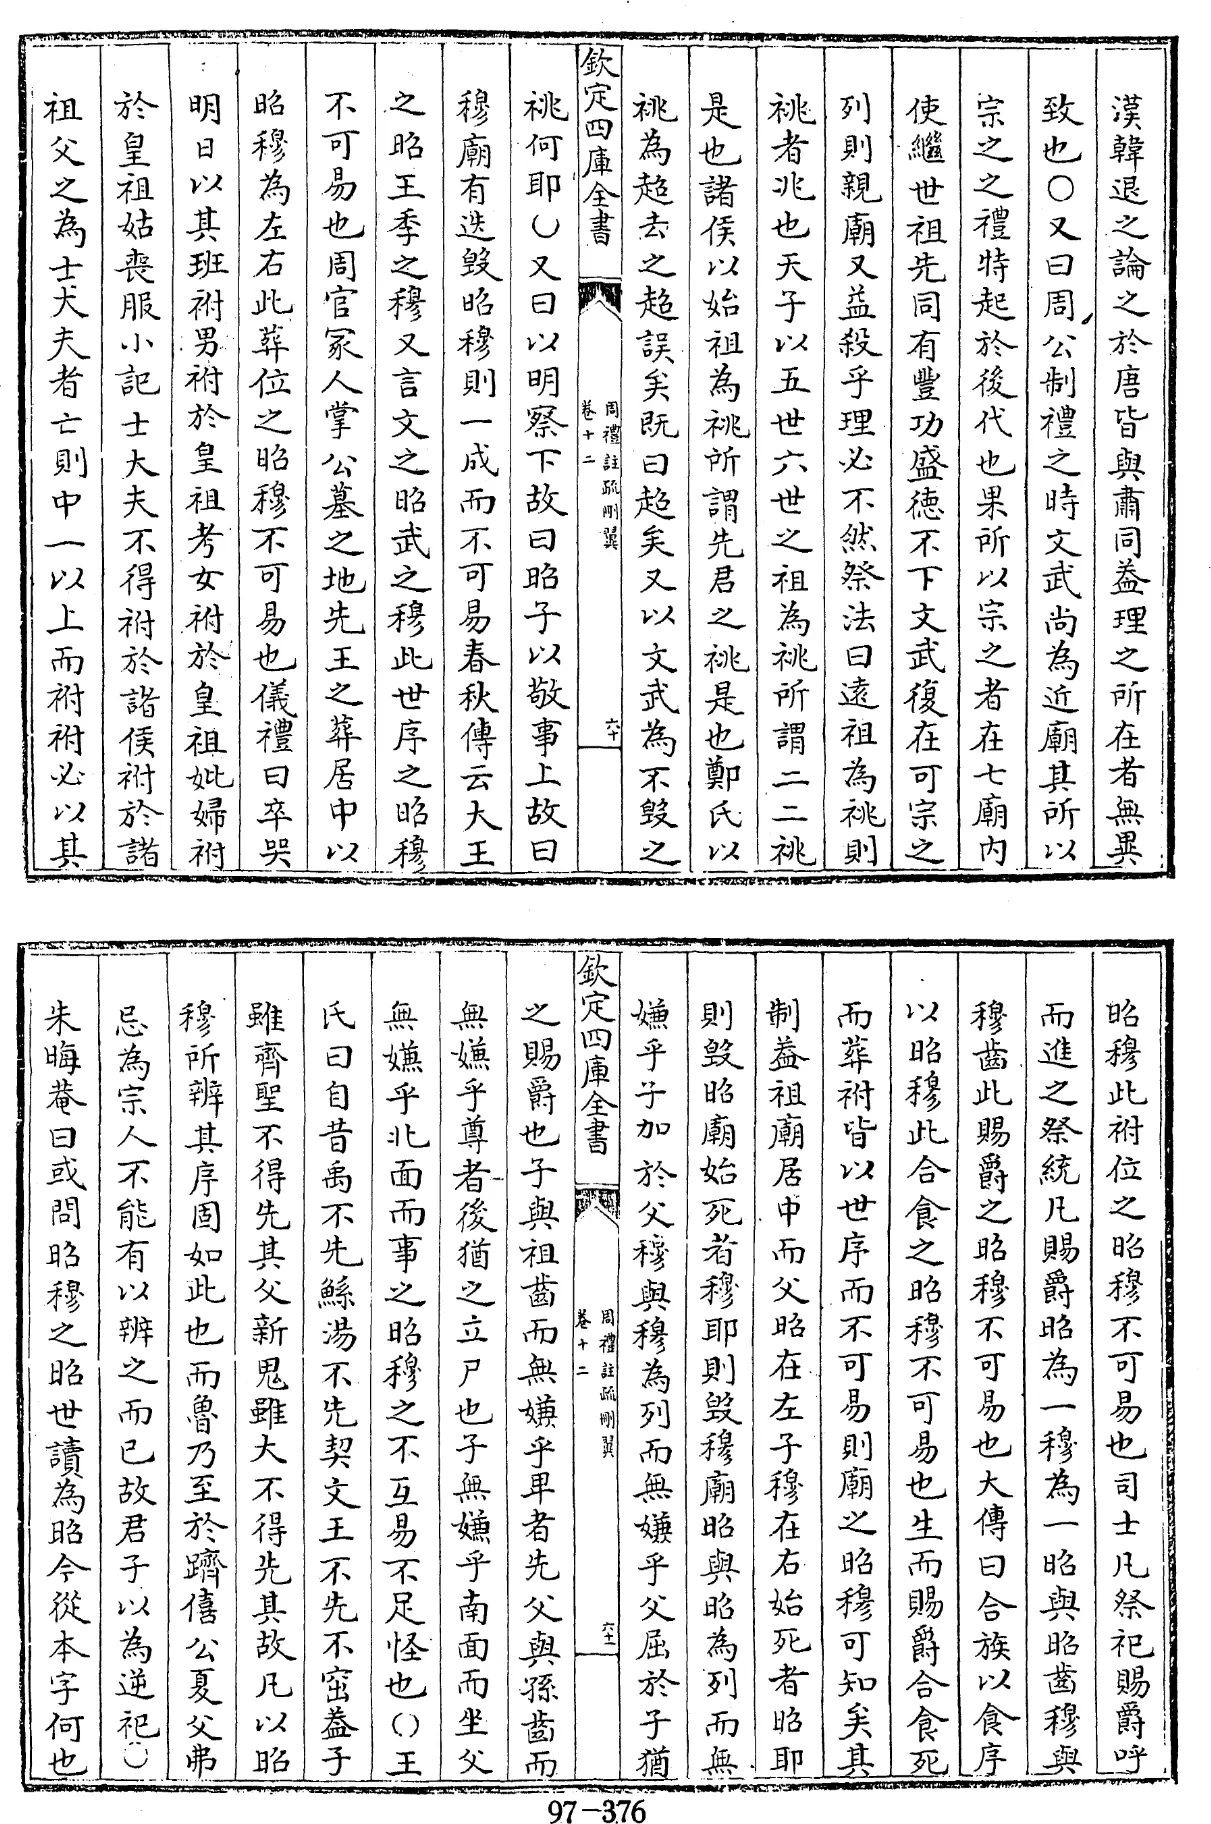 漢韓退之論之於唐皆與肅同葢理之所在者無異
致也○又曰周公制禮之時文武尚為近廟其所以
宗之之禮特起於後代也果所以宗之者在七廟内
使繼世祖先同有豐功盛徳不下文武復在可宗之
列則親廟又益殺乎理必不然祭法曰逺祖為祧則
祧者兆也天子以五世六世之祖為祧所謂二二祧
是也諸侯以始祖為祧所謂先君之祧是也鄭氏以
祧為超去之超誤矣既曰超矣又以文武為不毀之
欽定四庫全書
周禮註疏刪翼
卷十二
六十
祧何耶○又曰以明察下故曰昭子以敬事上故曰
穆廟有迭毀昭穆則一成而不可易春秋傳云大王
之昭王季之穆又言文之昭武之穆此世序之昭穆
不可易也周官冢人掌公墓之地先王之葬居中以
昭穆為左右此葬位之昭穆不可易也儀禮曰卒哭
明日以其班祔男祔於皇祖考女祔於皇祖妣婦祔
於皇祖姑喪服小記士大夫不得祔於諸侯祔於諸
祖父之為士大夫者亡則中一以上而祔祔必以其
昭穆此祔位之昭穆不可易也司士凡祭祀賜爵呼
而進之祭統凡賜爵昭為一穆為一昭與昭齒穆與
穆齒此賜爵之昭穆不可易也大傳曰合族以食序
以昭穆此合食之昭穆不可易也生而賜爵合食死
而葬祔皆以世序而不可易則廟之昭穆可知矣其
制葢祖廟居中而父昭在左子穆在右始死者昭耶
則毀昭廟始死者穆耶則毀穆廟昭與昭為列而無
嫌乎子加於父穆與穆為列而無嫌乎父屈於子猶
欽定四庫全書
周禮註疏刪翼
卷十二
六十一
之賜爵也子與祖齒而無嫌乎卑者先父與孫齒而
無嫌乎尊者後猶之立尸也子無嫌乎南面而坐父
無嫌乎北面而事之昭穆之不互易不足怪也○王
氏曰自昔禹不先鯀湯不先契文王不先不窋葢子
雖齊聖不得先其父新鬼雖大不得先其故凡以昭
穆所辨其序固如此也而魯乃至於躋僖公夏父弗
忌為宗人不能有以辨之而已故君子以為逆祀○
朱晦菴曰或問昭穆之昭世讀為昭今從本字何也
97-376